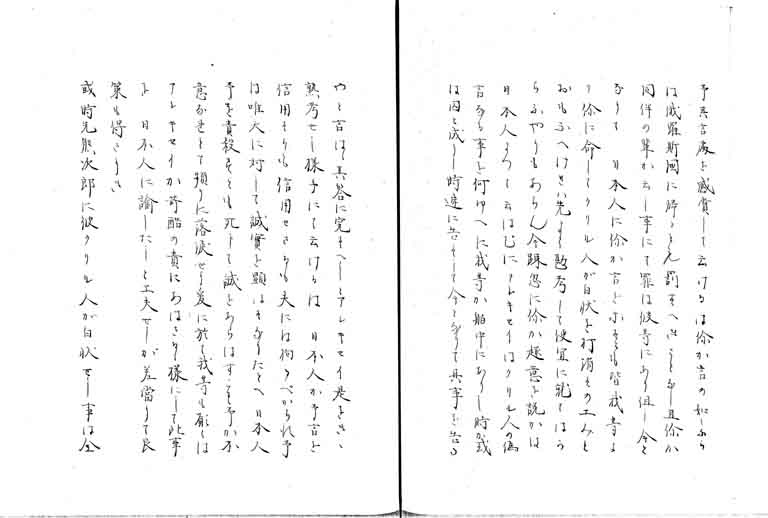 予其言處を感賞して云けるは你か言の如くならは
は俄羅斯国に歸るとも罰すへきことなし且你か
同伴の輩か云し事にて罪は彼等にあり但し今と
なりて日本人に你か言を示すとも皆我等よ
り你に命してクリル人か白状を打消すの工みと
おもふへけれは先よく勘考して便宜に託してはか
らふやうもあらん今踈忽に你か趣意を説かは
日本人よつて云はむにアレキセイはクリル人の偽
言なる事を何ゆへに我等か船中にありし時或
は囚と成りし時速に告すして今となりて其事を告る
やと言はゝ其答に究すへしとアレキセイ是をきゝ
熟考せし様子にて云けらは日本人か予言を
信用するも信用せさるも夫には拘るへからす予
は唯天に対して誠實を顕はすなりたとへ日本人
予を責殺すとも死して誠をあらはすこそ予か本
意なれとて頻りに落涙せり爰に於て我等も願くは
アレキセイか苛酷の責にあはさる様にして此事
を日本人に諭したしと工夫せしか差當りて良
策も得さりき
或時先熊次郎に彼クリル人か白状せし事は全